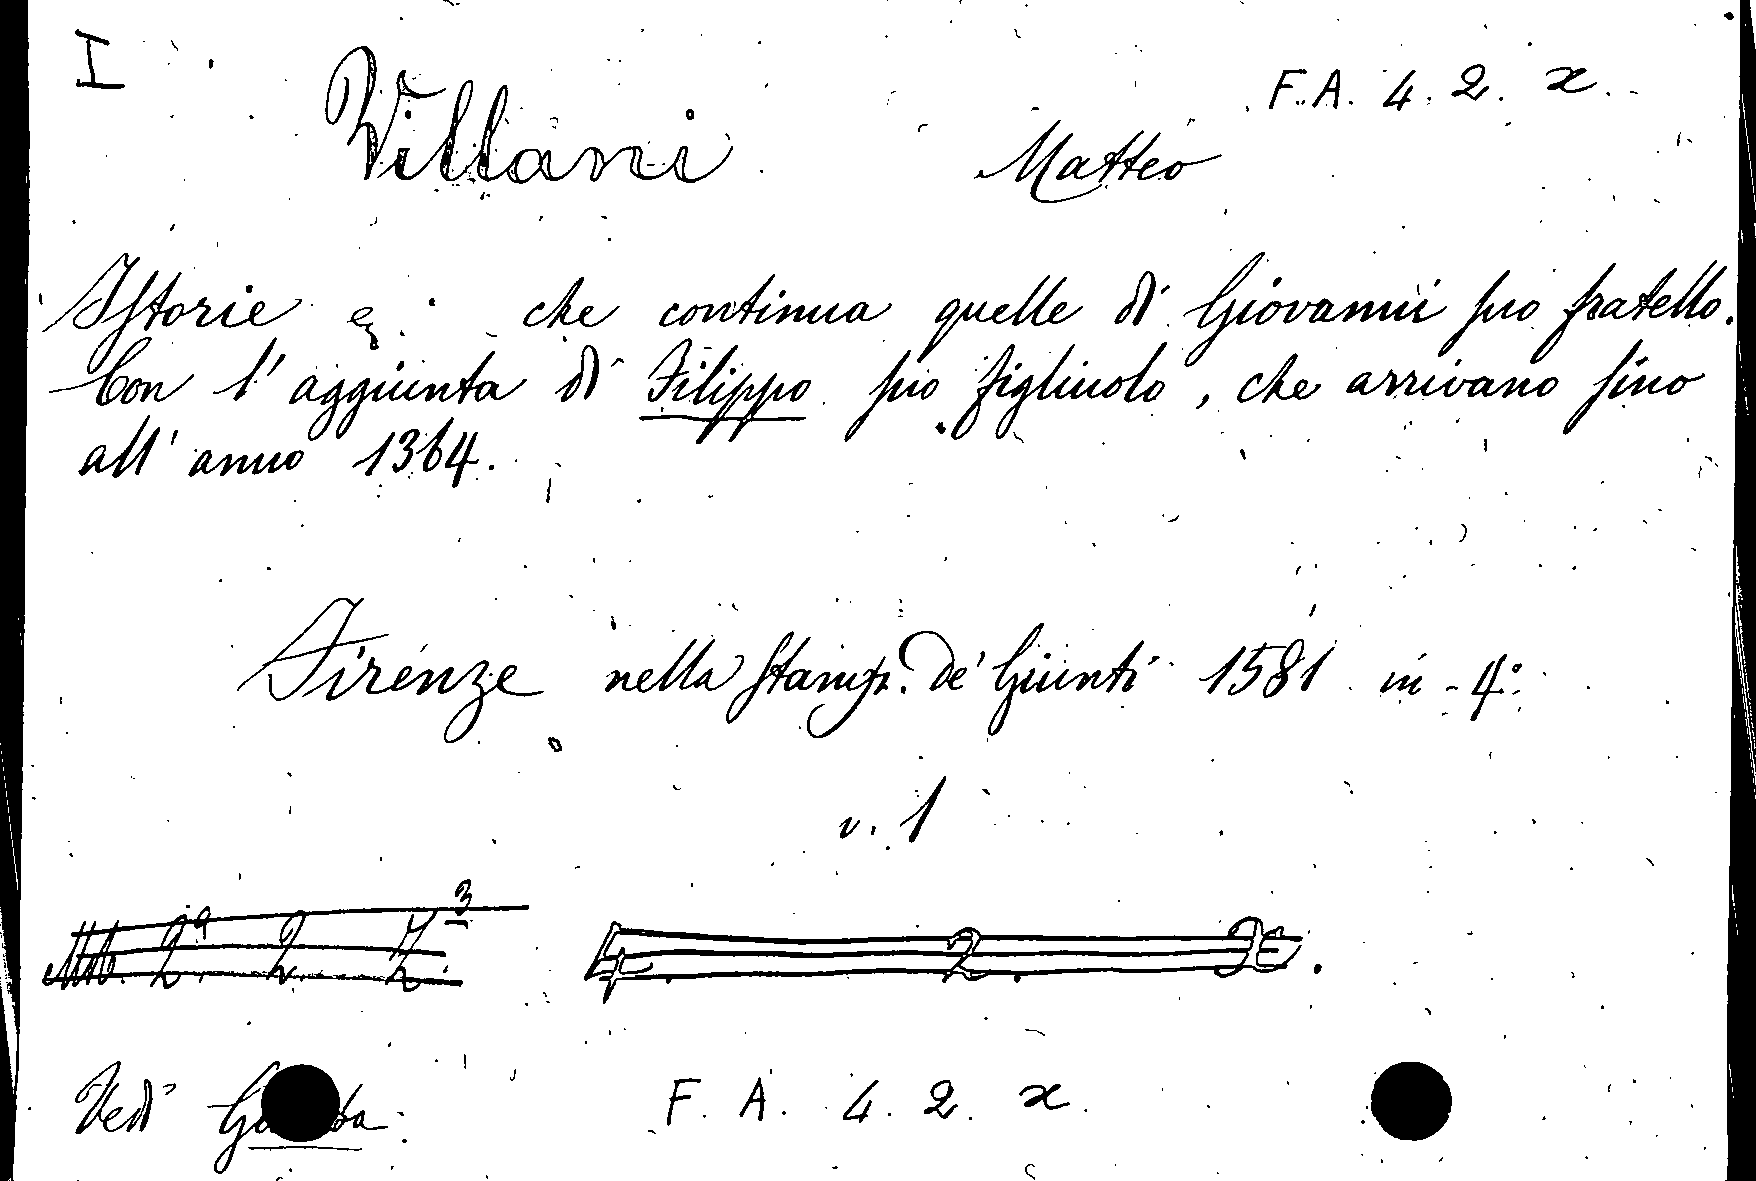 I
F. A. 4. 2. x.
Villani Matteo
Istorie che continua quelle di Giovanni suo fratello.
Con l'aggiunta di Filippo suo figliuolo, che arrivano sino
all'anno 1364.
Firenze nella Stamp. de' Giunti 1581 in-4°.
v. 1
2ª 2. Z.³ 4. 2. X.
Vedi F. A. 4. 2. x.